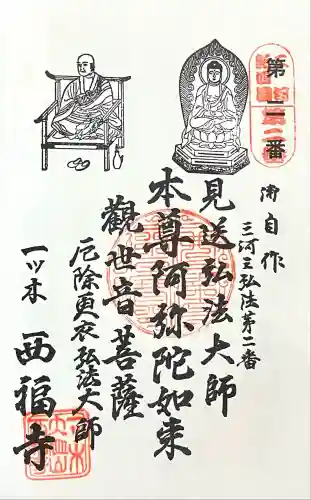 第二番
御自作
三河三弘法第二番
見送弘法大師
本尊阿弥陀如来
觀世音菩薩
厄除更衣弘法大師
一ツ木
西福寺